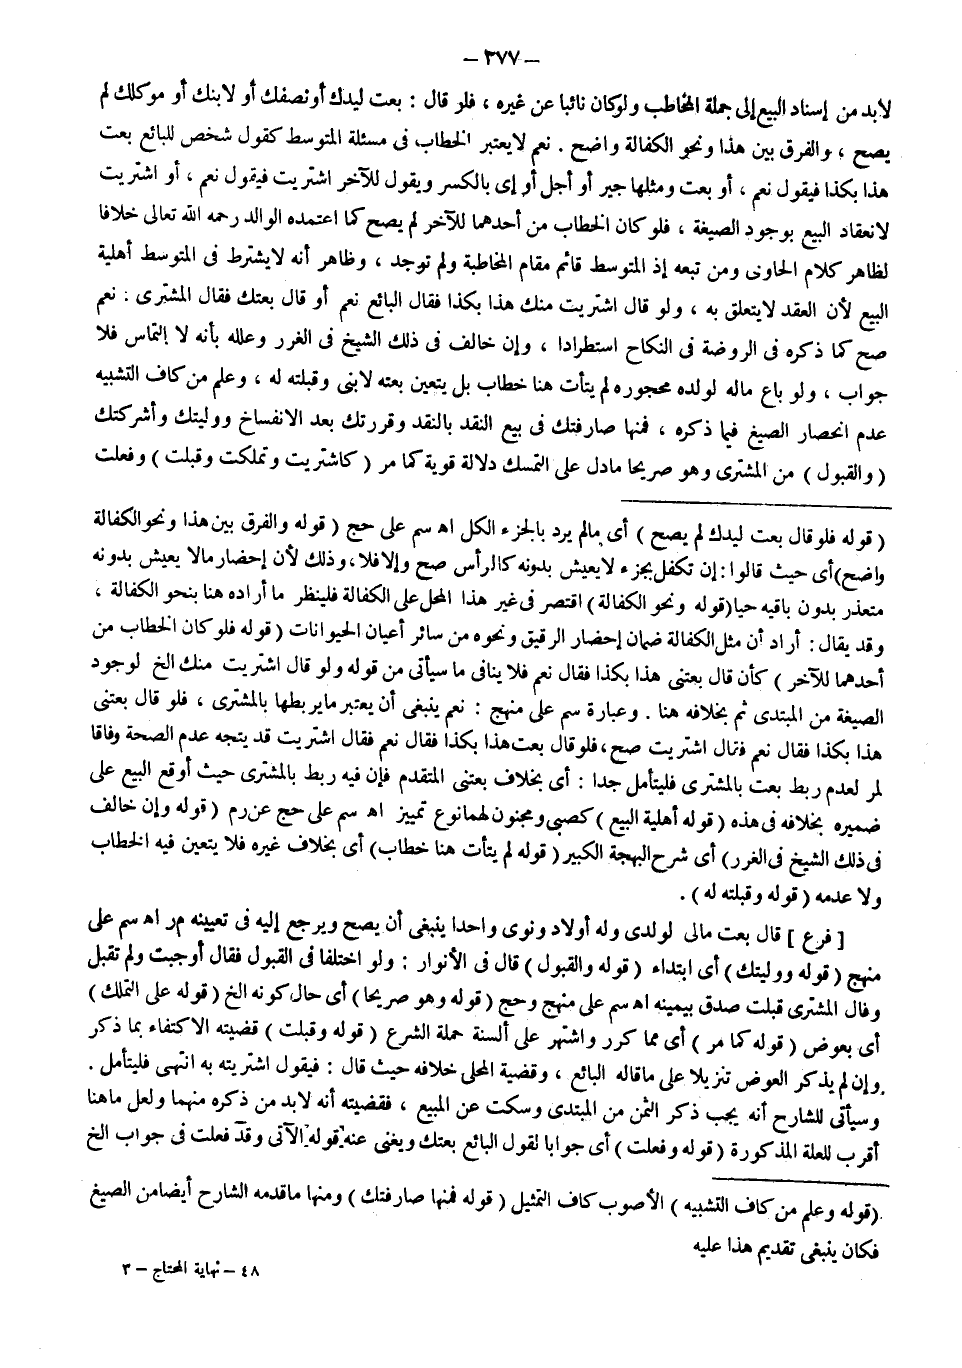 – ٣٧٧ –
لابد من إسناد البيع إلى جملة المخاطب ولو كان نائبا عن غيره ، فلو قال : بعت ليدك أو نصفك أو لابنك أو موكلك لم
يصح ، والفرق بين هذا ونحو الكفالة واضح . نعم لايعتبر الخطاب فى مسئلة المتوسط كقول شخص للبائع بعت
هذا بكذا فيقول نعم ، أو بعت ومثلها جير أو أجل أو إى بالكسر ويقول للآخر اشتريت فيقول نعم ، أو اشتريت
لانعقاد البيع بوجود الصيغة ، فلو كان الخطاب من أحدهما للآخر لم يصح كما اعتمده الوالد رحمه الله تعالى خلافا
لظاهر كلام الحاوى ومن تبعه إذ المتوسط قائم مقام المخاطبة ولم توجد ، وظاهر أنه لايشترط فى المتوسط أهلية
البيع لأن العقد لايتعلق به ، ولو قال اشتريت منك هذا بكذا فقال البائع نعم أو قال بعتك فقال المشترى : نعم
صح كما ذكره فى الروضة فى النكاح استطرادا ، وإن خالف فى ذلك الشيخ فى الغرر وعلله بأنه لا التماس فلا
جواب ، ولو باع ماله لولده محجوره لم يتأت هنا خطاب بل يتعين بعته لابنى وقبلته له ، وعلم من كاف التشبيه
عدم انحصار الصيغ فيما ذكره ، فمنها صارفتك فى بيع النقد بالنقد وقررتك بعد الانفساخ ووليتك وأشركتك
( والقبول ) من المشترى وهو صريحا مادل على التمسك دلالة قوية كما مر ( كاشتريت وتملكت وقبلت ) وفعلت
( قوله فلو قال بعت ليدك لم يصح ) أى مالم يرد بالجزء الكل اه سم على حج ( قوله والفرق بين هذا ونحو الكفالة
واضح ) أى حيث قالوا : إن تكفل بجزء لايعيش بدونه كالرأس صح وإلا فلا ، وذلك لأن إحضار مالا يعيش بدونه
متعذر بدون باقيه حيا ( قوله ونحو الكفالة ) اقتصر فى غير هذا المحل على الكفالة فلينظر ما أراده هنا بنحو الكفالة ،
وقد يقال : أراد أن مثل الكفالة ضمان إحضار الرقيق ونحوه من سائر أعيان الحيوانات ( قوله فلو كان الخطاب من
أحدهما للآخر ) كأن قال بعتنى هذا بكذا فقال نعم فلا ينافى ما سيأتى من قوله ولو قال اشتريت منك الخ لوجود
الصيغة من المبتدى ثم بخلافه هنا . وعبارة سم على منهج : نعم ينبغى أن يعتبر مايربطها بالمشترى ، فلو قال بعتنى
هذا بكذا فقال نعم فقال اشتريت صح ، فلو قال بعت هذا بكذا فقال نعم فقال اشتريت قد يتجه عدم الصحة وفاقا
لمر لعدم ربط بعت بالمشترى فليتأمل جدا : أى بخلاف بعتنى المتقدم فإن فيه ربط بالمشترى حيث أوقع البيع على
ضميره بخلافه فى هذه ( قوله أهلية البيع ) كصبى ومجنون لهما نوع تمييز اه سم على حج عن رم ( قوله وإن خالف
فى ذلك الشيخ فى الغرر ) أى شرح البهجة الكبير ( قوله لم يتأت هنا خطاب ) أى بخلاف غيره فلا يتعين فيه الخطاب
ولا عدمه ( قوله وقبلته له ) .
[ فرع ] قال بعت مالى لولدى وله أولاد ونوى واحدا ينبغى أن يصح ويرجع إليه فى تعيينه مر اه سم على
منهج ( قوله ووليتك ) أى ابتداء ( قوله والقبول ) قال فى الأنوار : ولو اختلفا فى القبول فقال أوجبت ولم تقبل
وقال المشترى قبلت صدق بيمينه اه سم على منهج وحج ( قوله وهو صريحا ) أى حال كونه الخ ( قوله على التملك )
أى بعوض ( قوله كما مر ) أى مما كرر واشتهر على ألسنة حملة الشرع ( قوله وقبلت ) قضيته الاكتفاء بما ذكر
وإن لم يذكر العوض تنزيلا على ماقاله البائع ، وقضية المحلى خلافه حيث قال : فيقول اشتريته به انتهى فليتأمل .
وسيأتى للشارح أنه يجب ذكر الثمن من المبتدى وسكت عن المبيع ، فقضيته أنه لابد من ذكره منهما ولعل ماهنا
أقرب للعلة المذكورة ( قوله وفعلت ) أى جوابا لقول البائع بعتك ويغنى عنه قوله الآتى وقد فعلت فى جواب الخ
( قوله وعلم من كاف التشبيه ) الأصوب كاف التمثيل ( قوله فمنها صارفتك ) ومنها ماقدمه الشارح أيضا من الصيغ
فكان ينبغى تقديم هذا عليه
٤٨ – نهاية المحتاج – ٣